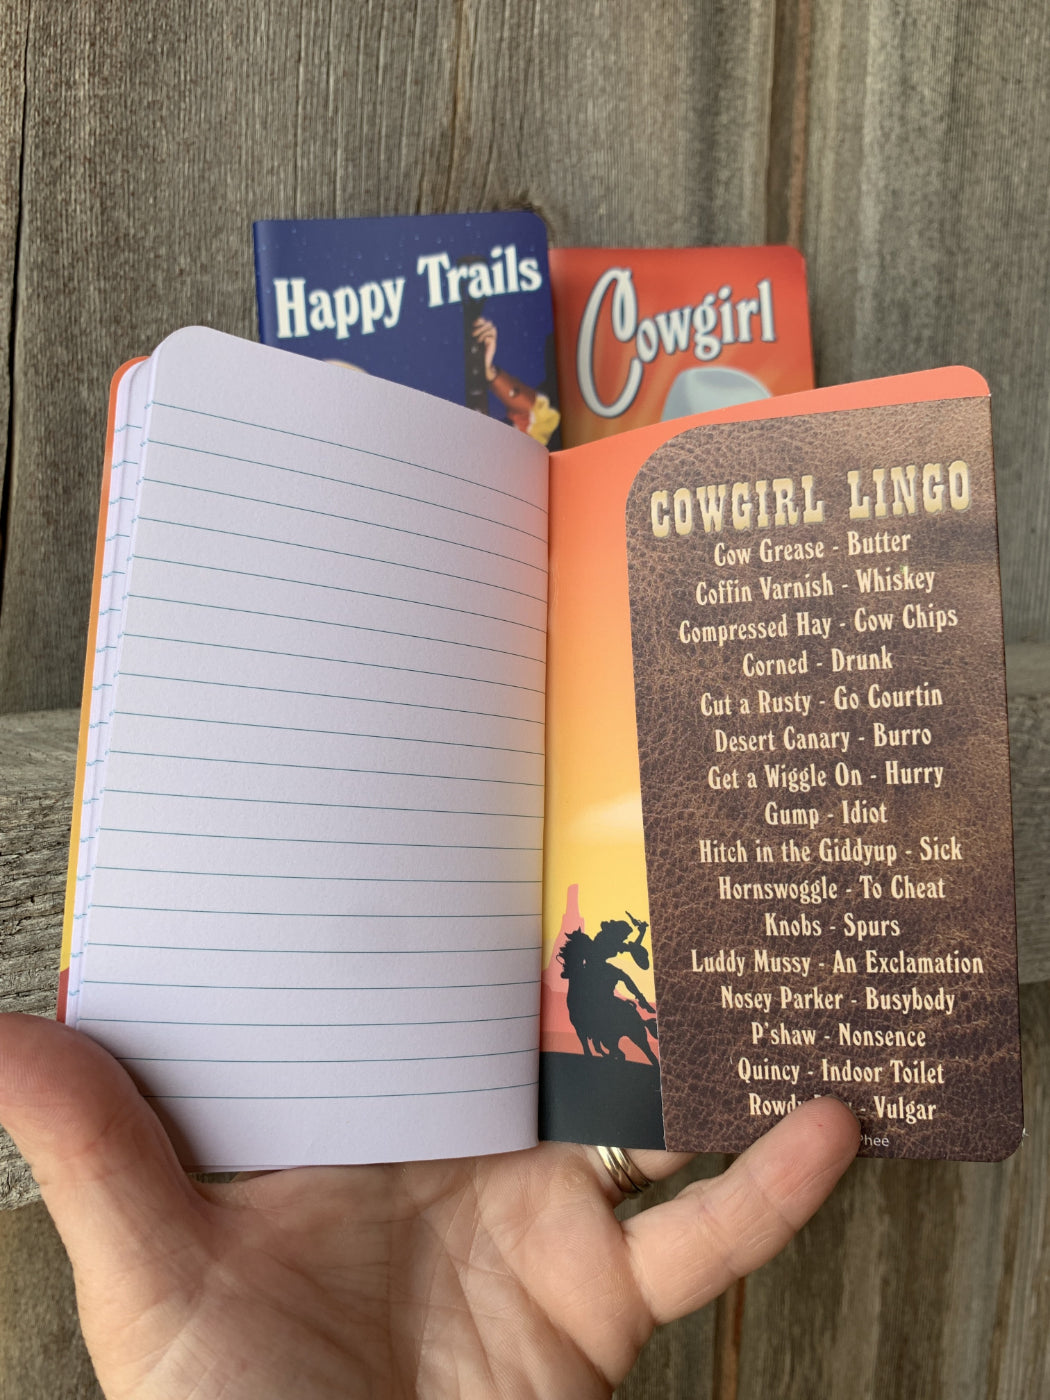 Happy Trails
Cowgirl
COWGIRL LINGO
Cow Grease - Butter
Coffin Varnish - Whiskey
Compressed Hay - Cow Chips
Corned - Drunk
Cut a Rusty - Go Courtin
Desert Canary - Burro
Get a Wiggle On - Hurry
Gump - Idiot
Hitch in the Giddyup - Sick
Hornswoggle - To Cheat
Knobs - Spurs
Luddy Mussy - An Exclamation
Nosey Parker - Busybody
P'shaw - Nonsence
Quincy - Indoor Toilet
- Vulgar